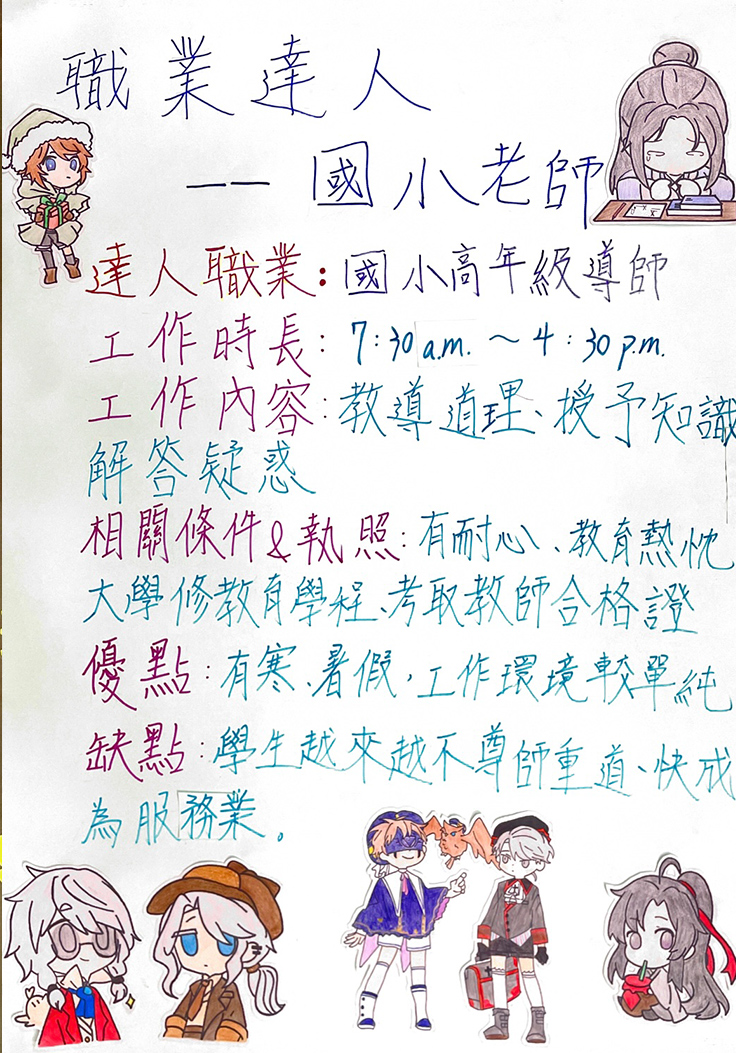 職業達人
——國小老師
達人職業:國小高年級導師
工作時長:7:30 a.m. ~ 4:30 p.m.
工作內容:教導道理、授予知識
解答疑惑
相關條件&執照:有耐心、教育熱忱
大學修教育學程、考取教師合格證
優點:有寒、暑假,工作環境較單純
缺點:學生越來越不尊師重道、快成
為服務業。